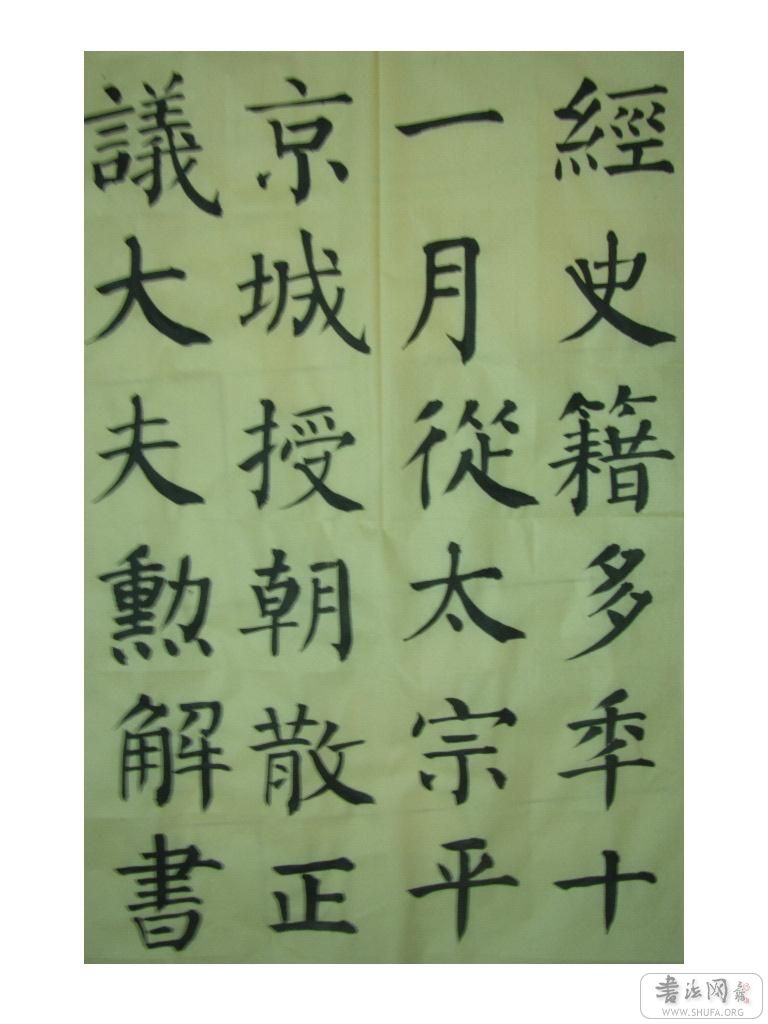 經史籍多年十
一月從太宗平
京城授朝散正
議大夫勲解書
書法网
WWW.SHUFA.ORG